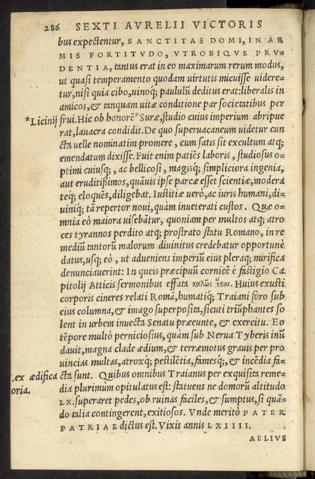 286 SEXTI AVRELII VICTORIS
bus expectentur, SANCTITAS DOMI, IN AR
MIS FORTITVDO, VTROBIQVE PRV-
DENTIA, tantus erat in eo maximarum rerum modus,
ut quasi temperamento quodam uirtutis micuisse uidere-
tur, nisi quia cibo, uinoq́; paululũ deditus erat: liberalis in
amicos, & tanquam uitæ conditione par societatibus per
*Licinij frui. Hic ob honorẽ* Suræ, studio cuius imperium abripue
rat, lauacra condidit. De quo superuacaneum uidetur cun
cta uelle nominatim promere, cum satis sit excultum atq;
emendatum dixisse. Fuit enim patiẽs laboris, studiosus o-
ptimi cuiusq;, ac bellicosi, magisq́; simpliciora ingenia,
aut eruditißimos, quãuis ipse parcæ esset scientiæ, moderà
teq́; eloquẽs, diligebat. Iustitiæ uerò, ac iuris humani, di-
uiniq́; tã repertor noui, quàm inueterati custos. Quæ o-
mnia eò maiora uisebãtur, quoniam per multos atq; atro
ces tyrannos perdito atq; prostrato statu Romano, in re
mediũ tantorũ malorum diuinitus credebatur opportunè
datus, usq; eò, ut adueniens imperiũ eius pleraq; mirifica
denunciauerint: In queis præcipuũ cornicẽ è fastigio Ca
pitolij Atticis sermonibus effatã καλῶς ἔσται. Huius exusti
corporis cineres relati Romã, humatiq́; Traiani foro sub
eius columna, & imago superposita, sicuti triũphantes so
lent in urbem inuecta Senatu præeunte, & exercitu. Eo
tẽpore multò perniciosius, quàm sub Nerua Tyberis inũ
dauit, magna clade ædium, & terræmotus grauis per pro
uincias multas, atroxq́; pestilẽtia, famesq́;, & incẽdia fa-
Lex ædifica cta sunt. Quibus omnibus Traianus per exquisita reme-
oria. dia plurimùm opitulatus est: statuens ne domorũ altitudo
LX. superaret pedes, ob ruinas faciles, & sumptus, si quã-
do talia contingerent, exitiosos. Vnde meritò PATER
PATRIAE dictus est. Vixit annis LXIIII.
AELIVS